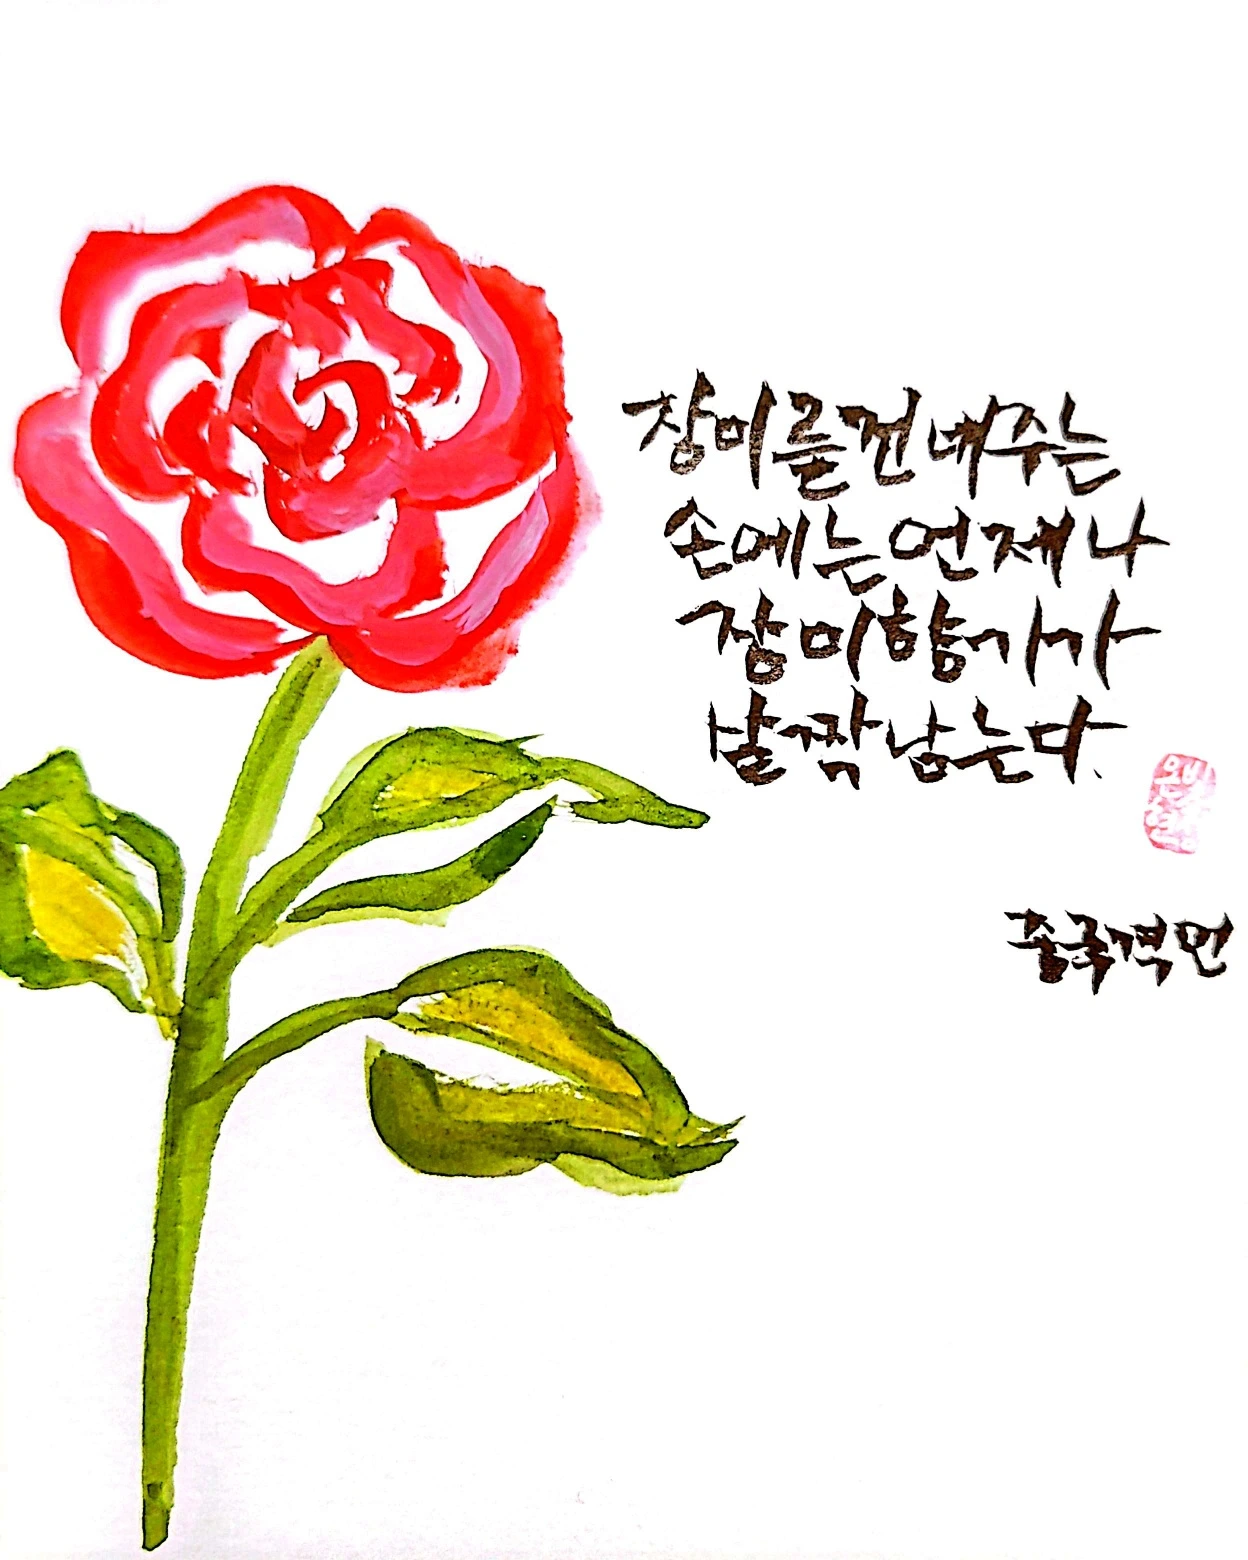 장미를 건네주는
손에는 언제나
장미향기가
살짝 남는다.
중국격언